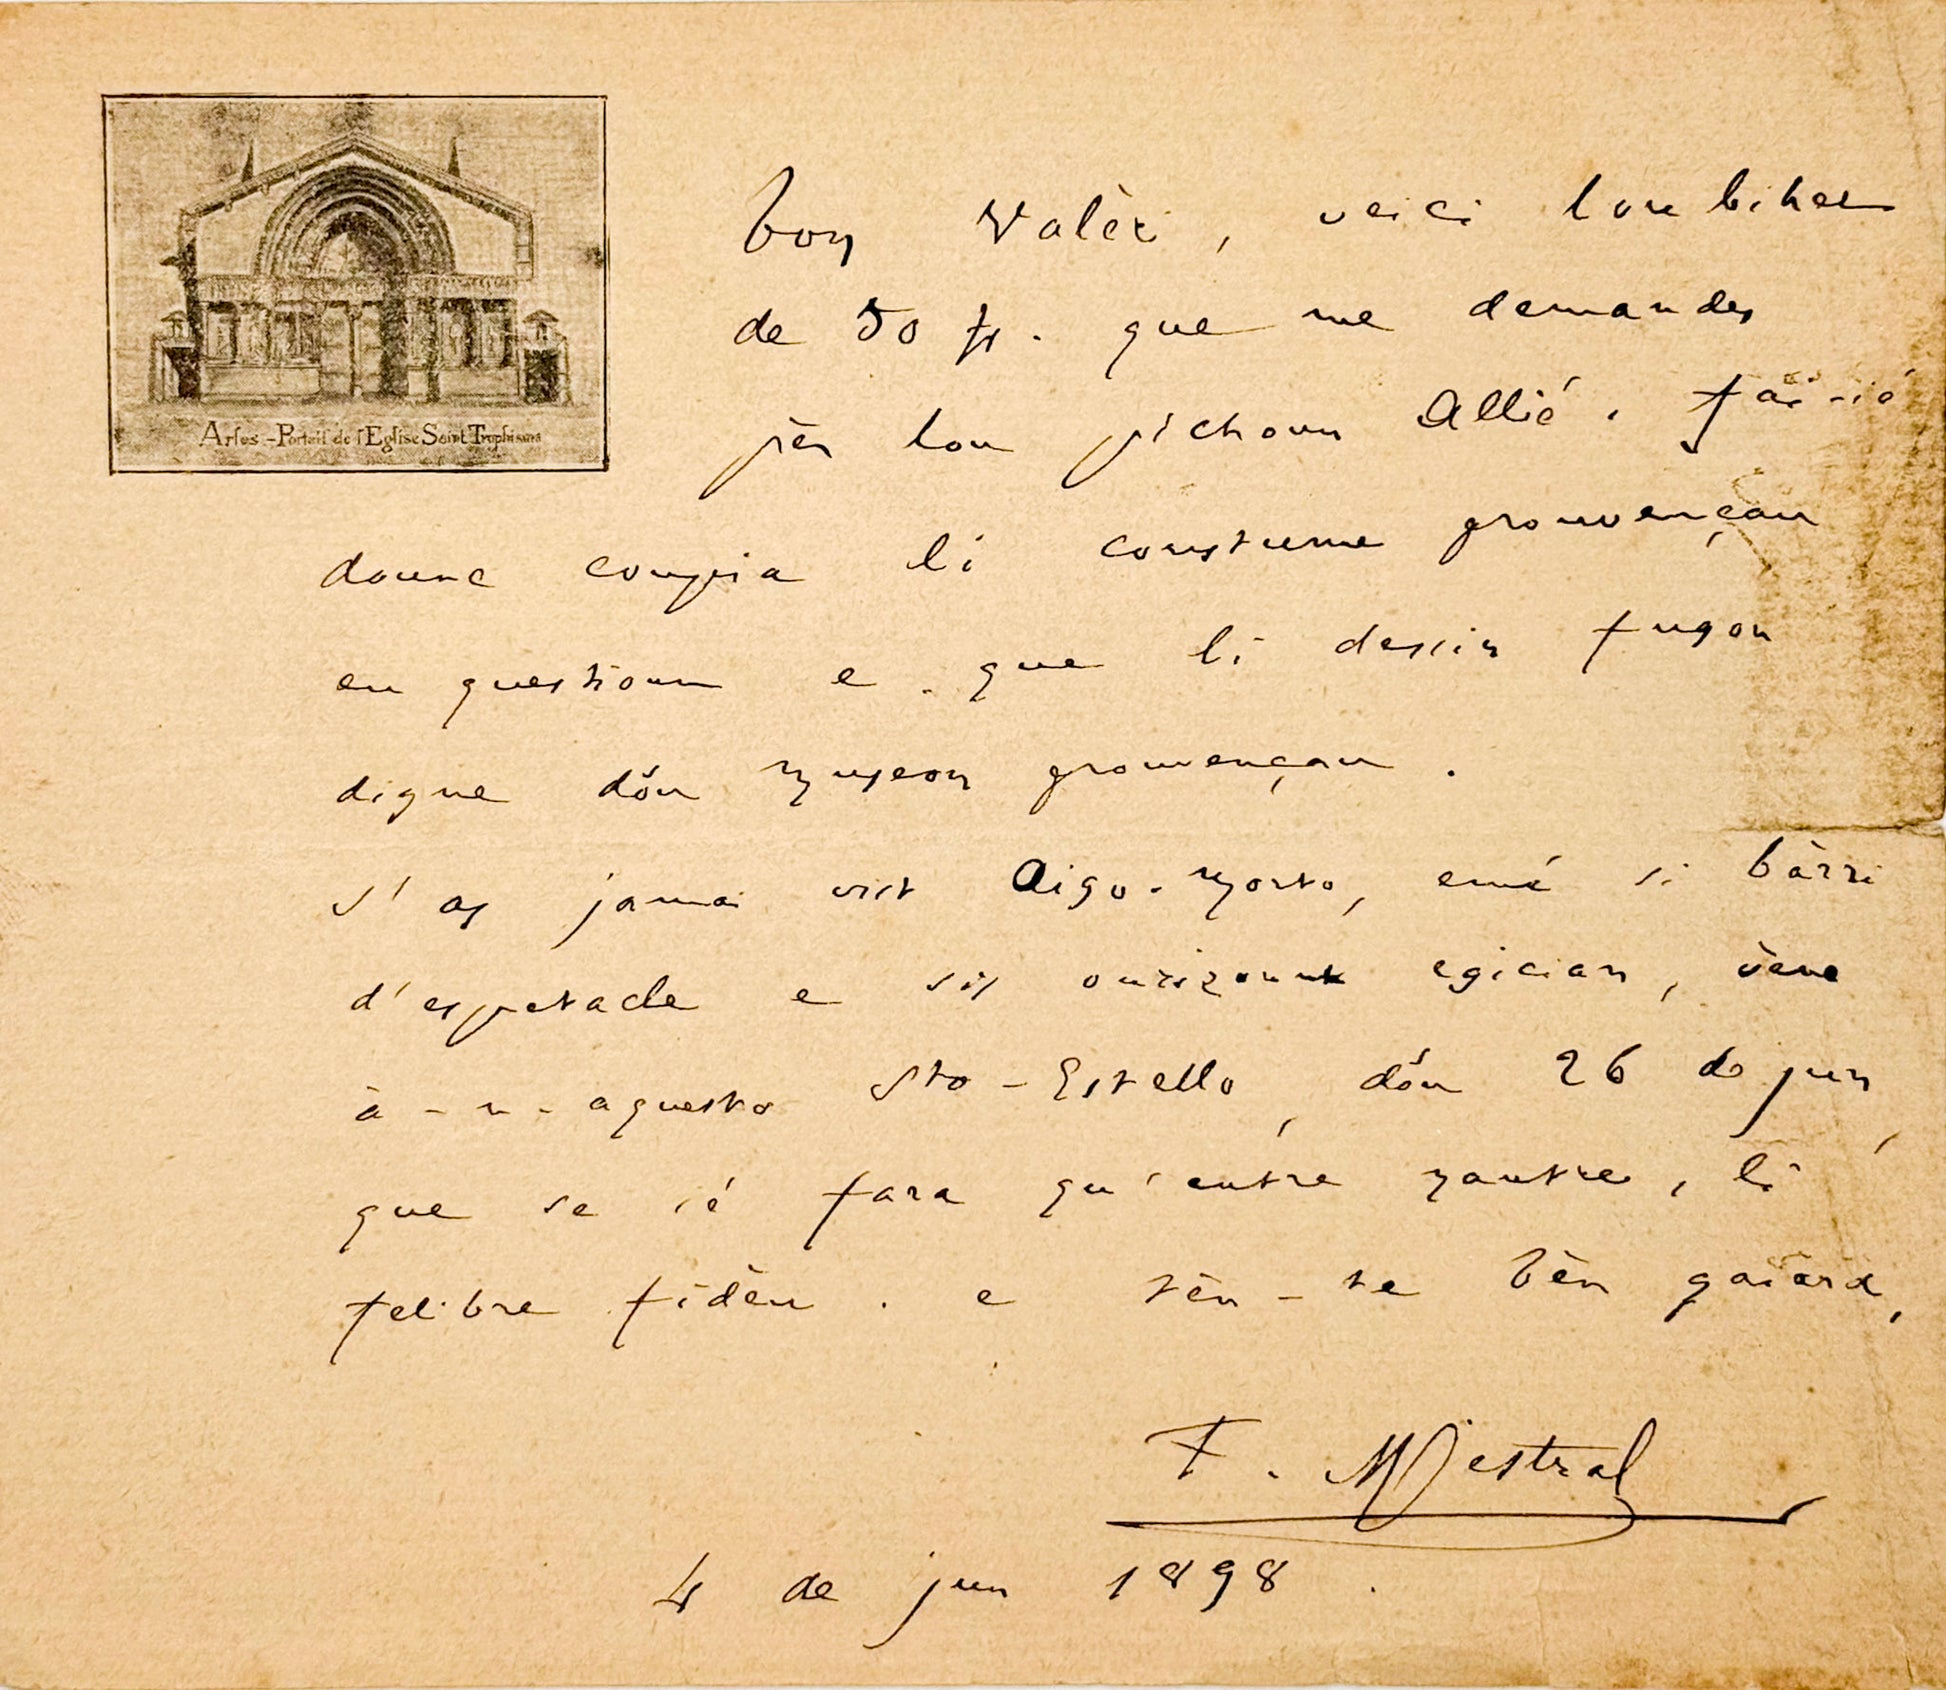 Arles - Portail de l'Eglise Saint Trophime
bon Valèri, veici lou bihet
de 50 fr. que me demandes
pèr lou pichoun Allié. fai-ié
dounc coupia li coustume prouvençau
en questioun e que li dessin fugon
digne dóu Museon prouvençau.
s'as jamai vist Aigo-Morto, emé si bàrri
d'espetacle e sis ourizount egician, vène
à-n-aquesto Sto-Estello, dóu 26 de jun,
que se ié fara qu'entre nautre, li
felibre fidèu. e tèn-te bèn gaiard,
F. Mistral
4 de jun 1898.